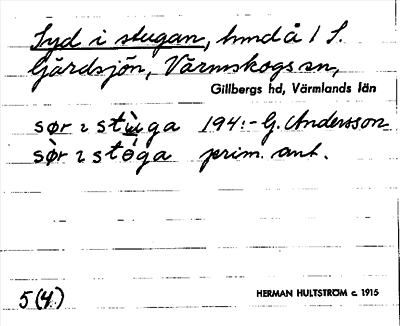 Syd i stugan, hmd å 1 S.
Gärdsjön, Värmskogs sn,
Gillbergs hd, Värmlands län
sør ı stùga 194:- G. Andersson
sør ı stòga prim. ant.
5(4.)
HERMAN HULTSTRÖM c. 1915